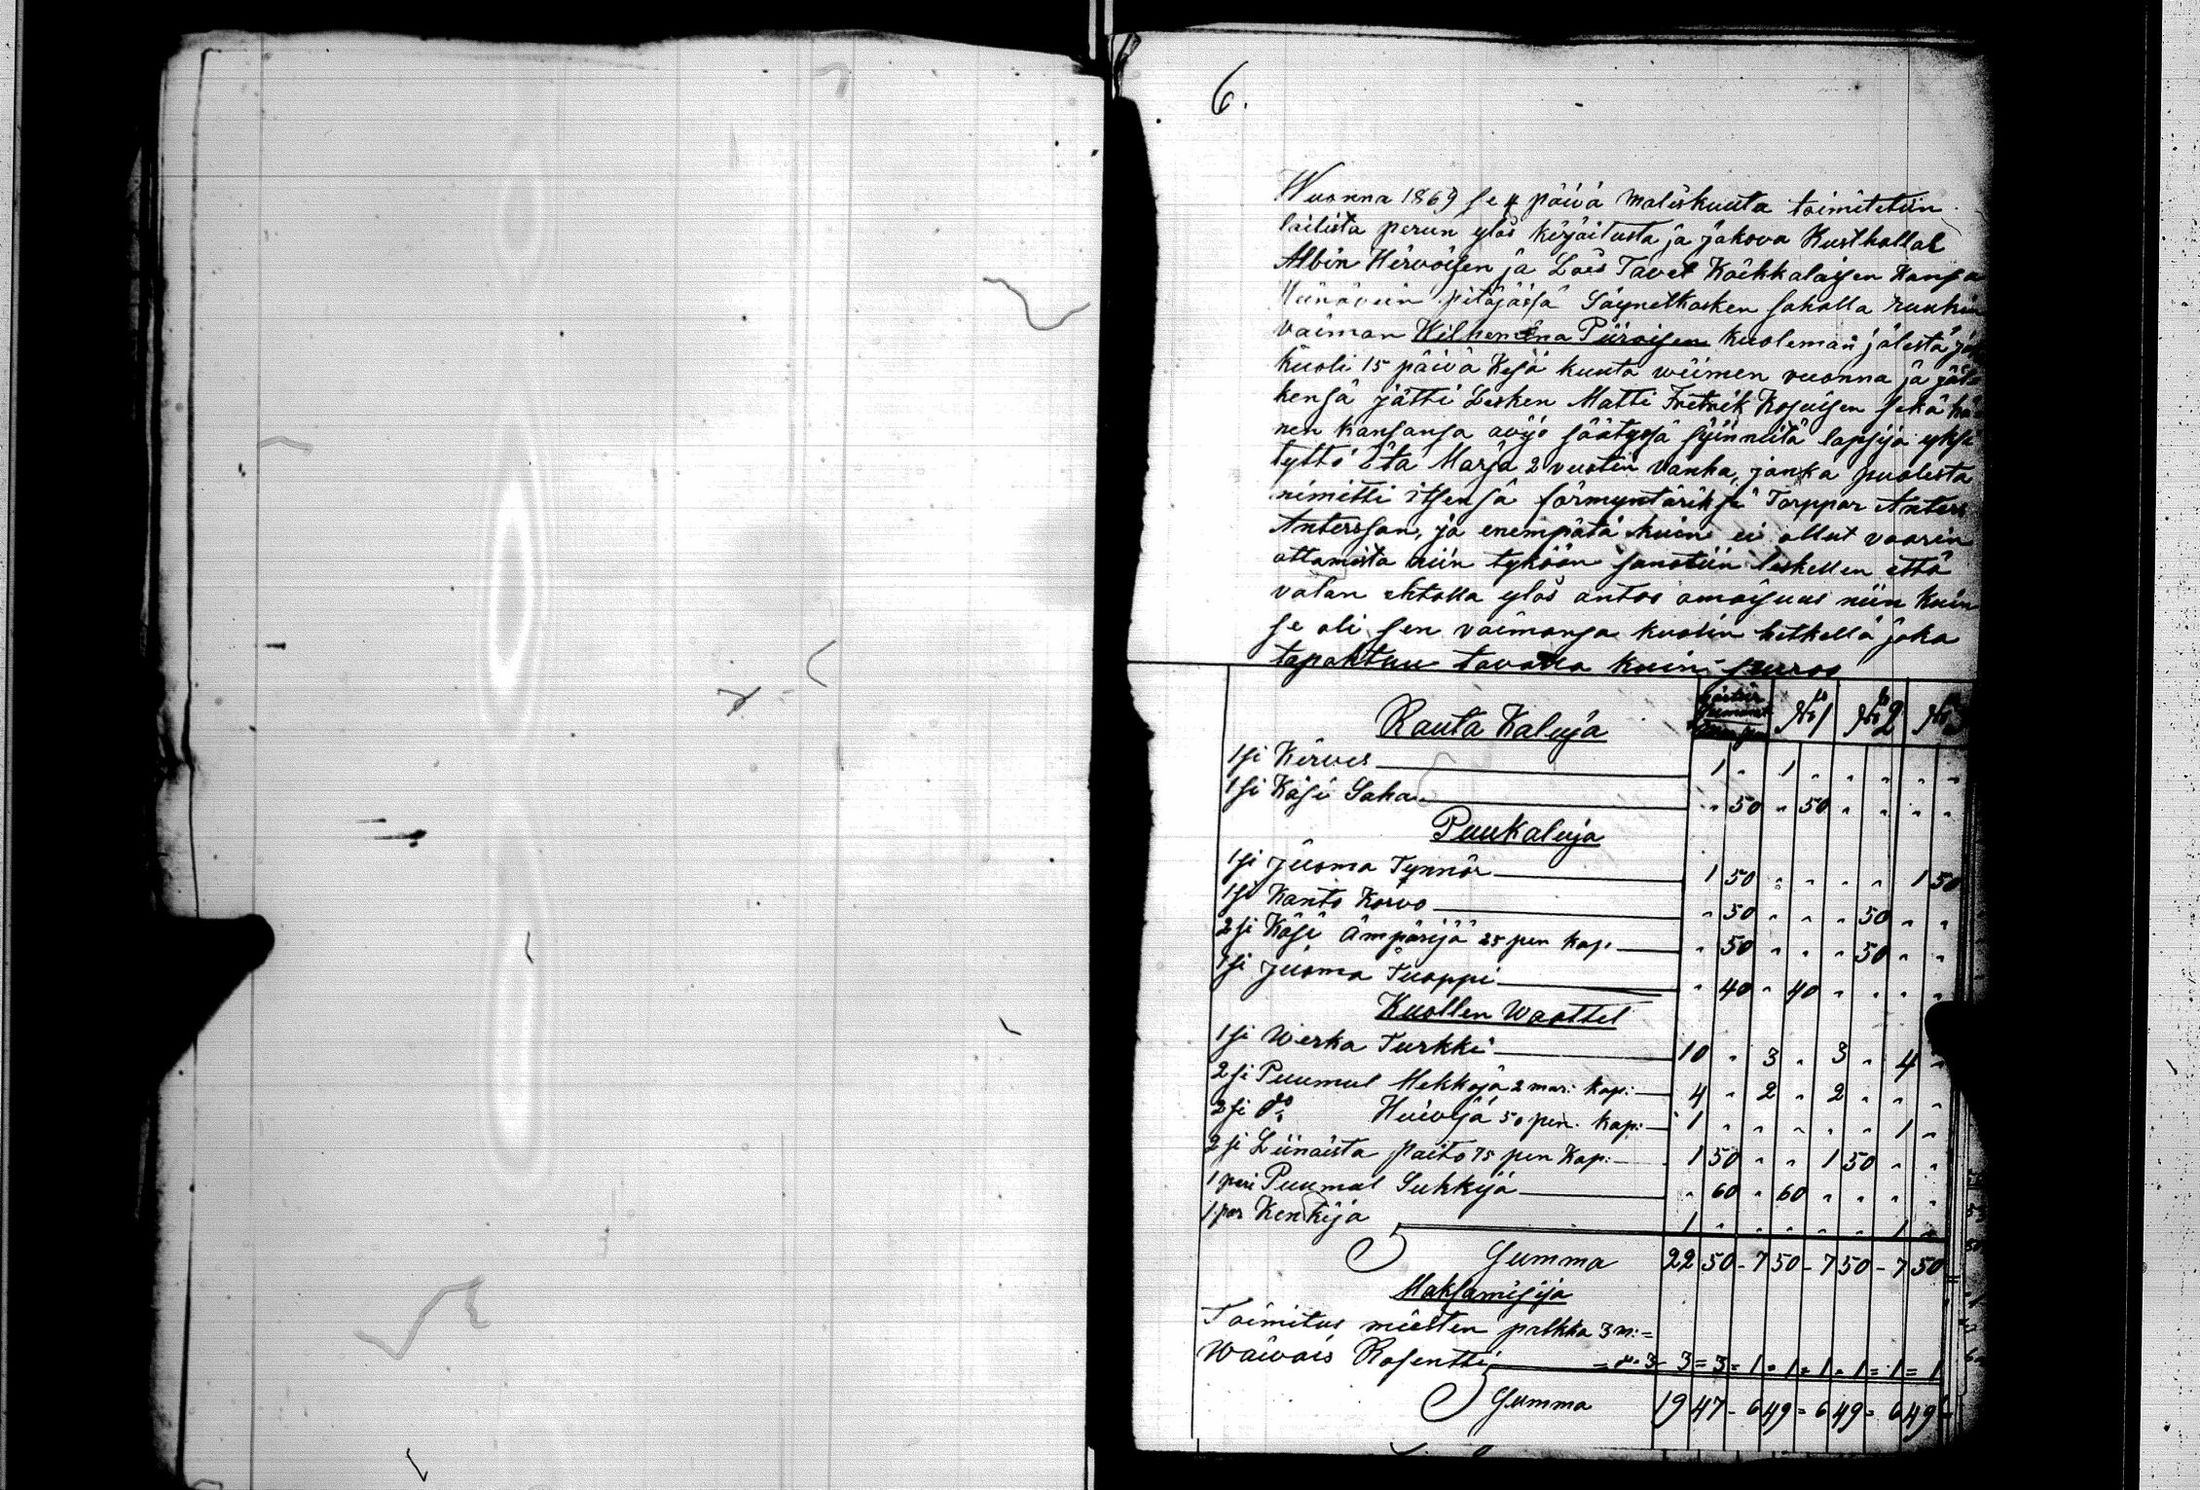 6.
Wuonna 1869 se 4 päivä Maliskuuta toimitetiin
lailista perun ylös kirjoitusta ja jakova Rusthollal
Albin Hirvoisen ja Loës Tavet Koikkalaisen Kansa
pitäjässä Säynetkosken saholla ruukin
vaiman Wilhemina Piiroisen kuoleman jälestä jo
kuoli 15 päivä Kesä kuuta wiimen vuonna ja jäl
kensä jätti Lesken Matti Fretrik Kosuisen sekä hä
nen kansansa avijo säätysä syinneitä lapsija yksi
tyttö Eta Marja 2 vuotin vanha, jonka puolesta
nimitti itsensä förmyntäriksi Torppar Anters
Antersson, ja enempätä kuin ei ollut vaarin
ottamista niin tyköön sanotiin leskellen että
valan ehtolla ylös antoo omaisuus niin kuin
se oli sen vaimonsa kuolin hetkellä joka
tapahtuu tavalla kuin seurroo
Rauta Kaluja No 1 No 2 No
1si Kirves 1 " 1 " " " " "
1si Käsi Saha " 50 " 50 " " " "
Puukaluja
1si Juoma Tynnör 1 50 " " " " 1 50
1si Kanto Korvo " 50 " " " 50 " "
2si Käsi Ämpärijä 25 pen kap: " 50 " " " 50 " "
1si Juoma Tuoppi " 40 " 40 " " " "
Kuollen Waattet
1si Werka Turkki 10 " 3 " 3 " 4 "
2si Puumul Mekkoja 2 mar: kap: 4 " 2 " 2 " " "
2si do Huivija 50 pen. kap: 1 " " " " " 1 "
2si Liinaista paito 75 pen Kap: 1 50 " " 1 50 " "
1 pari Puumul Sukkija " 60 " 60 " " " "
1 par Kenkija 1 " " " " " 1 "
Summa 22 50 - 7 50 - 7 50 - 7 50
Maksamisija
Toimitus miesten palkka 3 m: =
Waivais Rosentti = d: 3 - 3 = 3 = 1 = 1 = 1 = 1 = 1 = 1
Summa 19 47 - 6 49 = 6 49 = 6 49